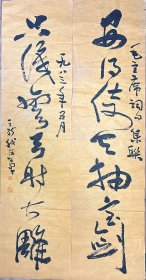 毛主席词句集联
安得倚天抽宝劍
一九八三年五月
只識彎弓射大雕